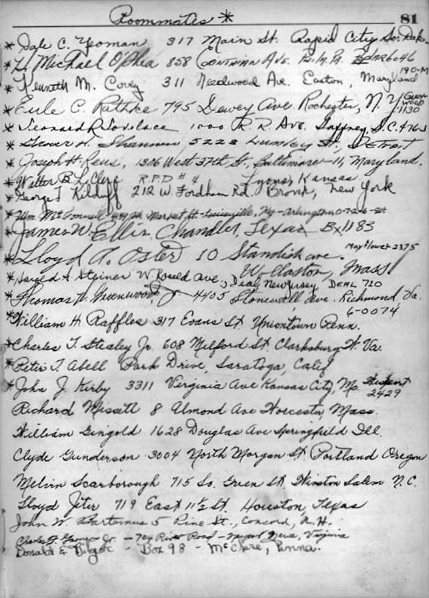 Roommates * 81
* Dale C. Yeoman 317 Main St. Rapid City So. Dak.
* H. Michael O'Shea 858
* Kenneth M. Corey 311 Needwood Ave. Easton, Maryland 190-M
* Earle C. 795 Dewey Ave Rochester, N.Y. Glenwood 1130
* Leonard R. Lovelace 1000 R.R. Ave. Gaffney, S.C. 476J
* 5222 St. Detroit
* Joseph H. 1306 West 37th St. Baltimore-11, Maryland.
* Walter B. LeClere R.F.D # 4 Lyons, Kansas
* George J. Kilduff 212 W. Fordham Rd. Bronx, New York
* Wm. McConnell Market St. Louisville, Ky - Arlington
* James W. Ellis Chandler, Texas Bx 1183
* Lloyd A. Oster 10 Standish ave. Mayflower 2375
* Harold A Steiner W Roseld Ave, Deal, New Jersey DEAL 720 W. Mass
* Thomas W. Greenwood Jr 4405 Stonewall Ave. Richmond Va. 6-0074
* William H Raffles 317 Evans St Uniontown Penn.
* Charles T Stealey Jr. 608 Milford St Clarksburg W. Va.
* Peter T. Abell Park Drive, Saratoga, Calif
* John J Kirby 3311 Virginia Ave Kansas City, Mo. 2429
Richard 8 Almond Ave Worcester Mass.
William Gingold 1628 Douglas Ave Springfield Ill.
Clyde Gunderson 3004 North Morgan St Portland Oregon
Melvin Scarborough 715 So. Green St. Winston Salem N.C.
Lloyd Jiter 719 East 11½ St. Houston, Texas
John W. 5 Pine St., Concord, N.H.
Charles F. Jr. - 704 River Road - Newport News, Virginia
Donald E. - Box 98 - McClure, Penna.